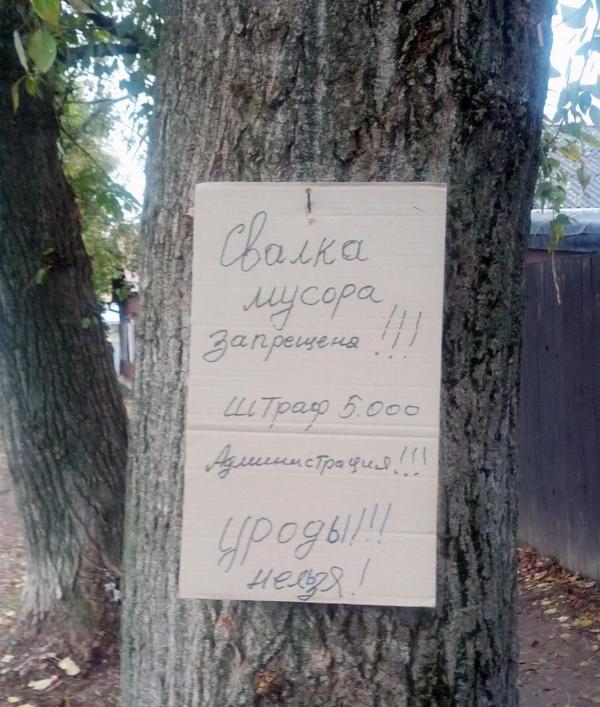 Свалка
мусора
запрещена!!!
штраф 5.000
Администрация!!!
уроды!!!
нельзя!